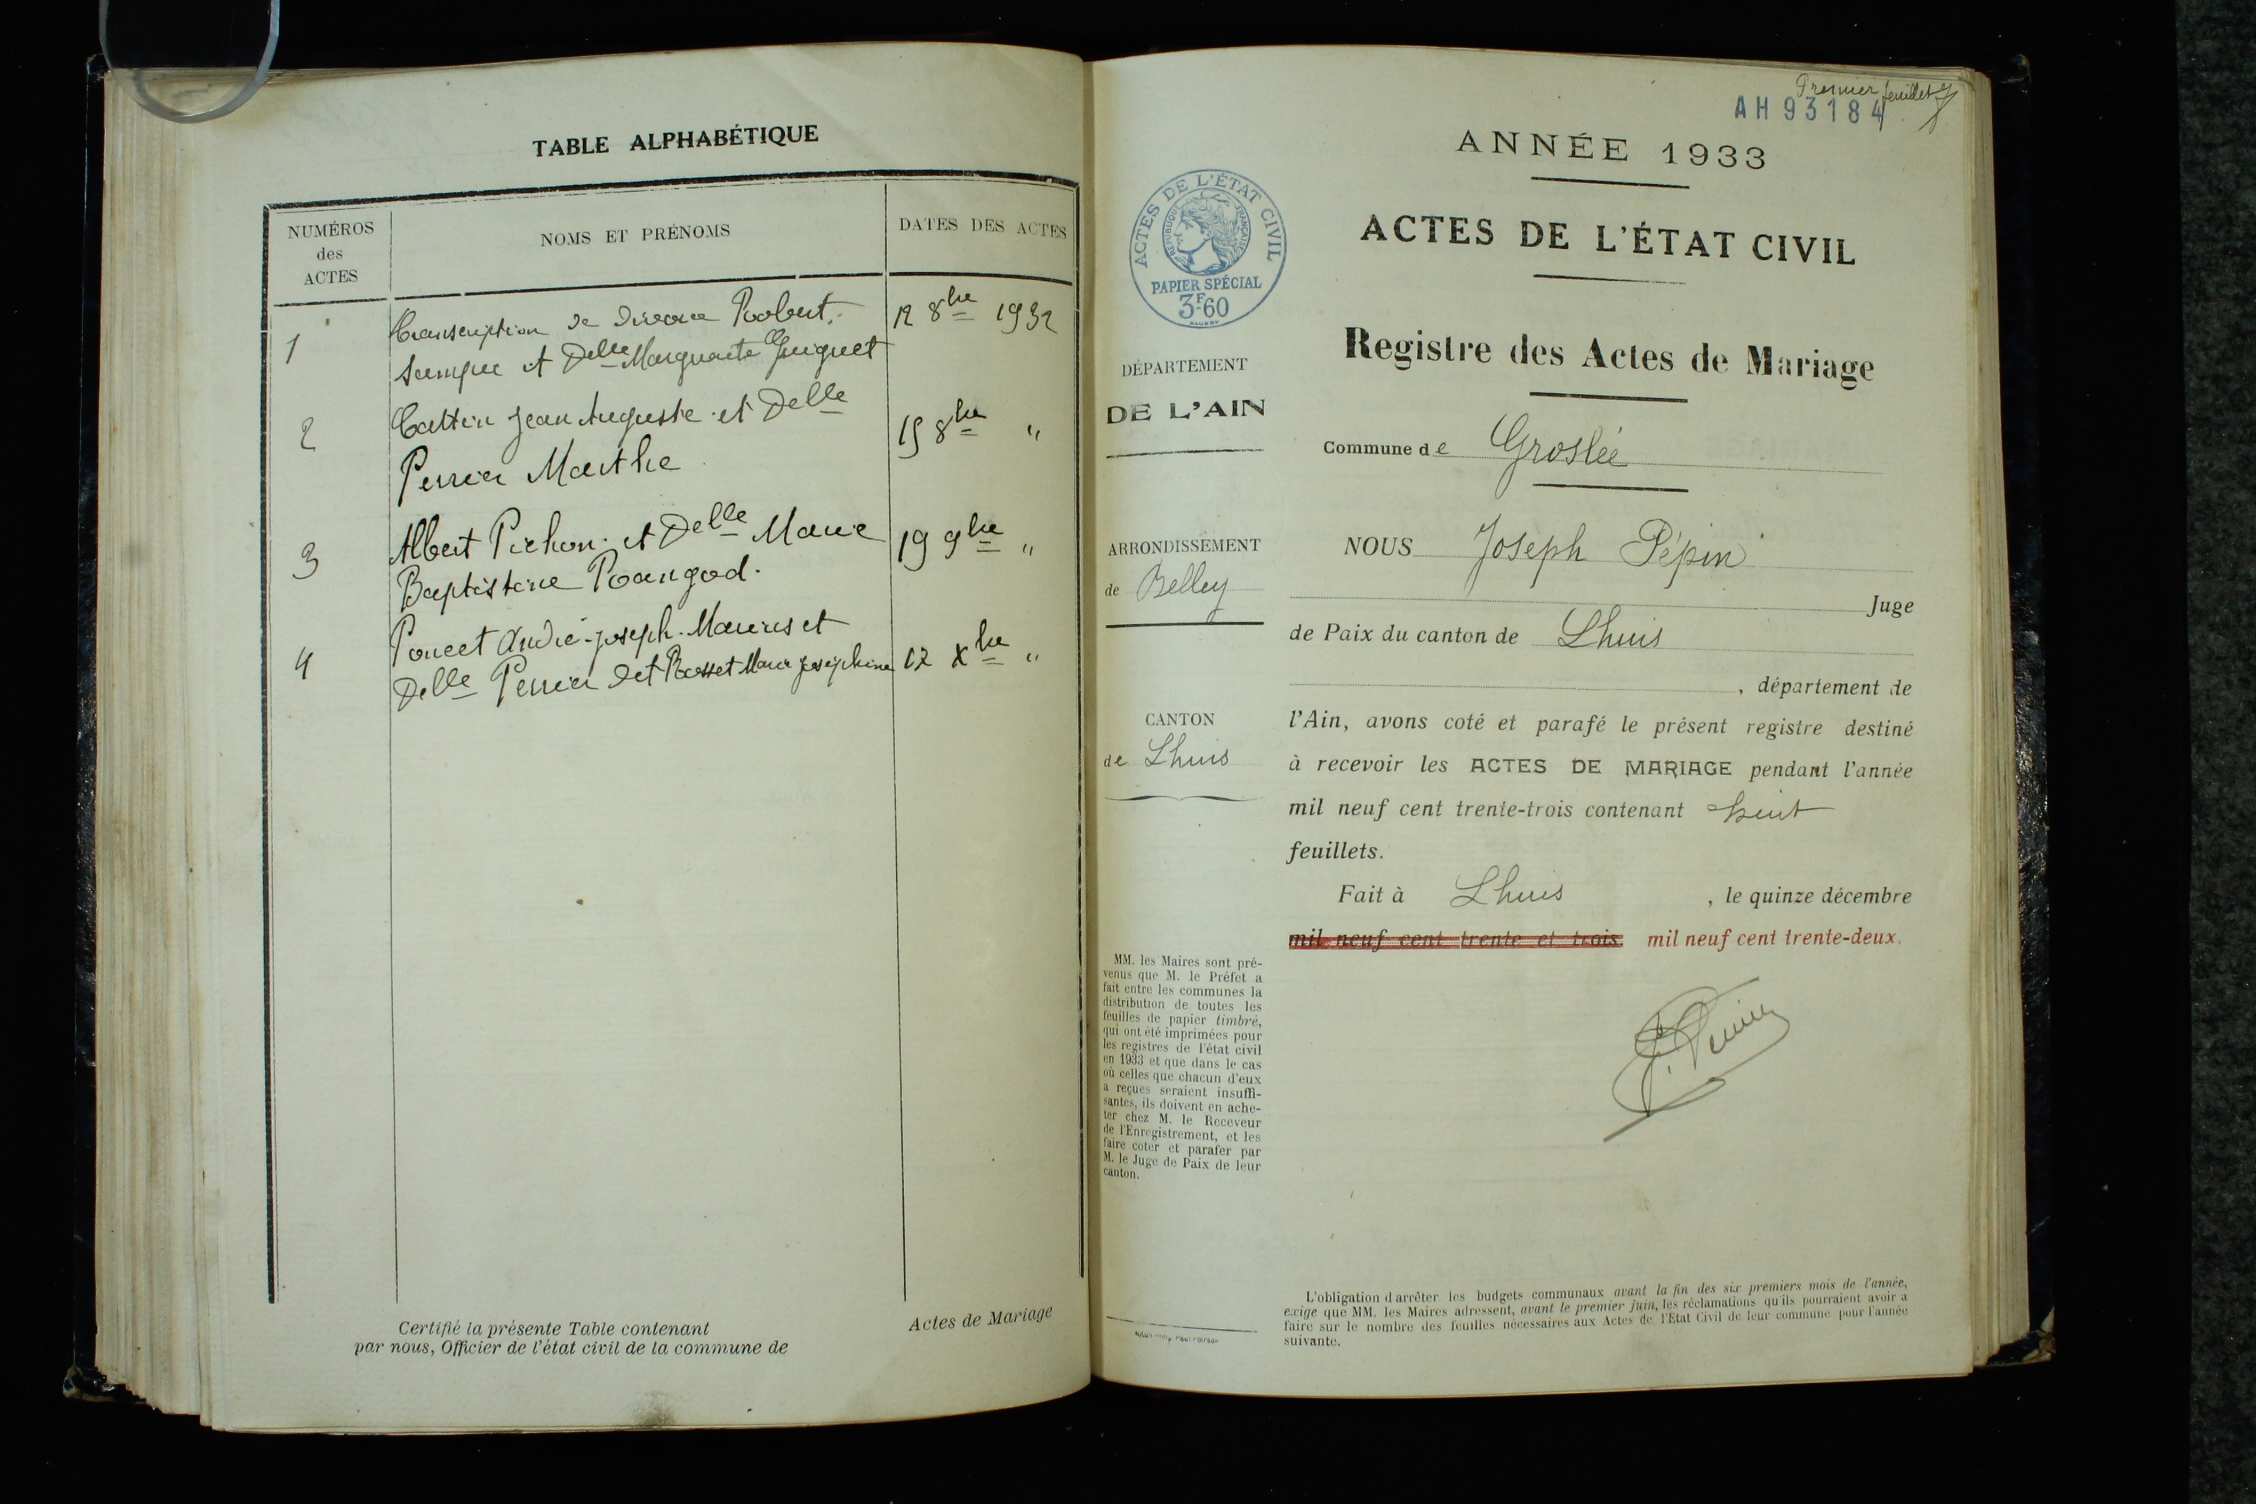 TABLE ALPHABÉTIQUE
NUMÉROS
des
ACTES
NOMS ET PRÉNOMS
DATES DES ACTES
1
Transcription de divorce Robert
et Delle Marguerite Guiguet
12 8bre 1932
2
Cattin Jean Auguste et Delle
Perrier Marthe
15 8bre "
3
Albert Pichon et Delle Marie
Baptistine
19 9bre "
4
Poncet André-Joseph-Marius et
Delle Perrier dit Rosset Marie Joséphine
12 Xbre "
Certifié la présente Table contenant
Actes de Mariage
par nous, Officier de l'état civil de la commune de
Premier feuillet
AH 93184
ANNÉE 1933
ACTES DE L'ÉTAT CIVIL
RÉPUBLIQUE FRANÇAISE
PAPIER SPÉCIAL
3F-60
ACTES DE L'ÉTAT CIVIL
Registre des Actes de Mariage
DÉPARTEMENT
DE L'AIN
Commune de Groslée
ARRONDISSEMENT
de Belley
CANTON
de Lhuis
NOUS Joseph Pépin
Juge
de Paix du canton de Lhuis
, département de
l'Ain, avons coté et parafé le présent registre destiné
à recevoir les ACTES DE MARIAGE pendant l'année
mil neuf cent trente-trois contenant huit
feuillets.
Fait à Lhuis , le quinze décembre
mil neuf cent trente et trois mil neuf cent trente-deux.
MM. les Maires sont pré-
venus que M. le Préfet a
fait entre les communes la
distribution de toutes les
feuilles de papier timbré,
qui ont été imprimées pour
les registres de l'état civil
en 1933 et que dans le cas
où celles que chacun d'eux
a reçues seraient insuffi-
santes, ils doivent en ache-
ter chez M. le Receveur
de l'Enregistrement, et les
faire coter et parafer par
M. le Juge de Paix de leur
canton.
L'obligation d'arrêter les budgets communaux avant la fin des six premiers mois de l'année,
exige que MM. les Maires adressent, avant le premier juin, les réclamations qu'ils pourraient avoir a
faire sur le nombre des feuilles nécessaires aux Actes de l'Etat Civil de leur commune pour l'année
suivante.